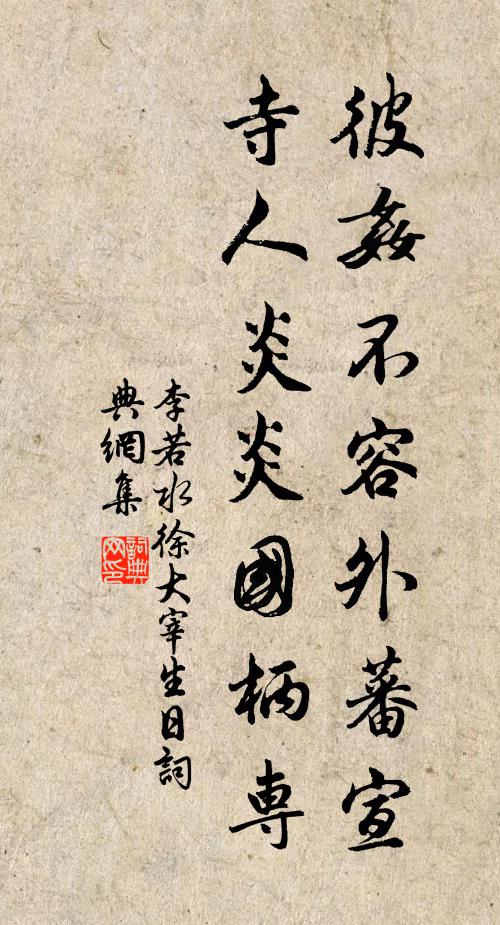 彼姦不容外蕃宣
寺人炎炎國柄専
李若水徐大宰生日詞
典網集
詞典
网印